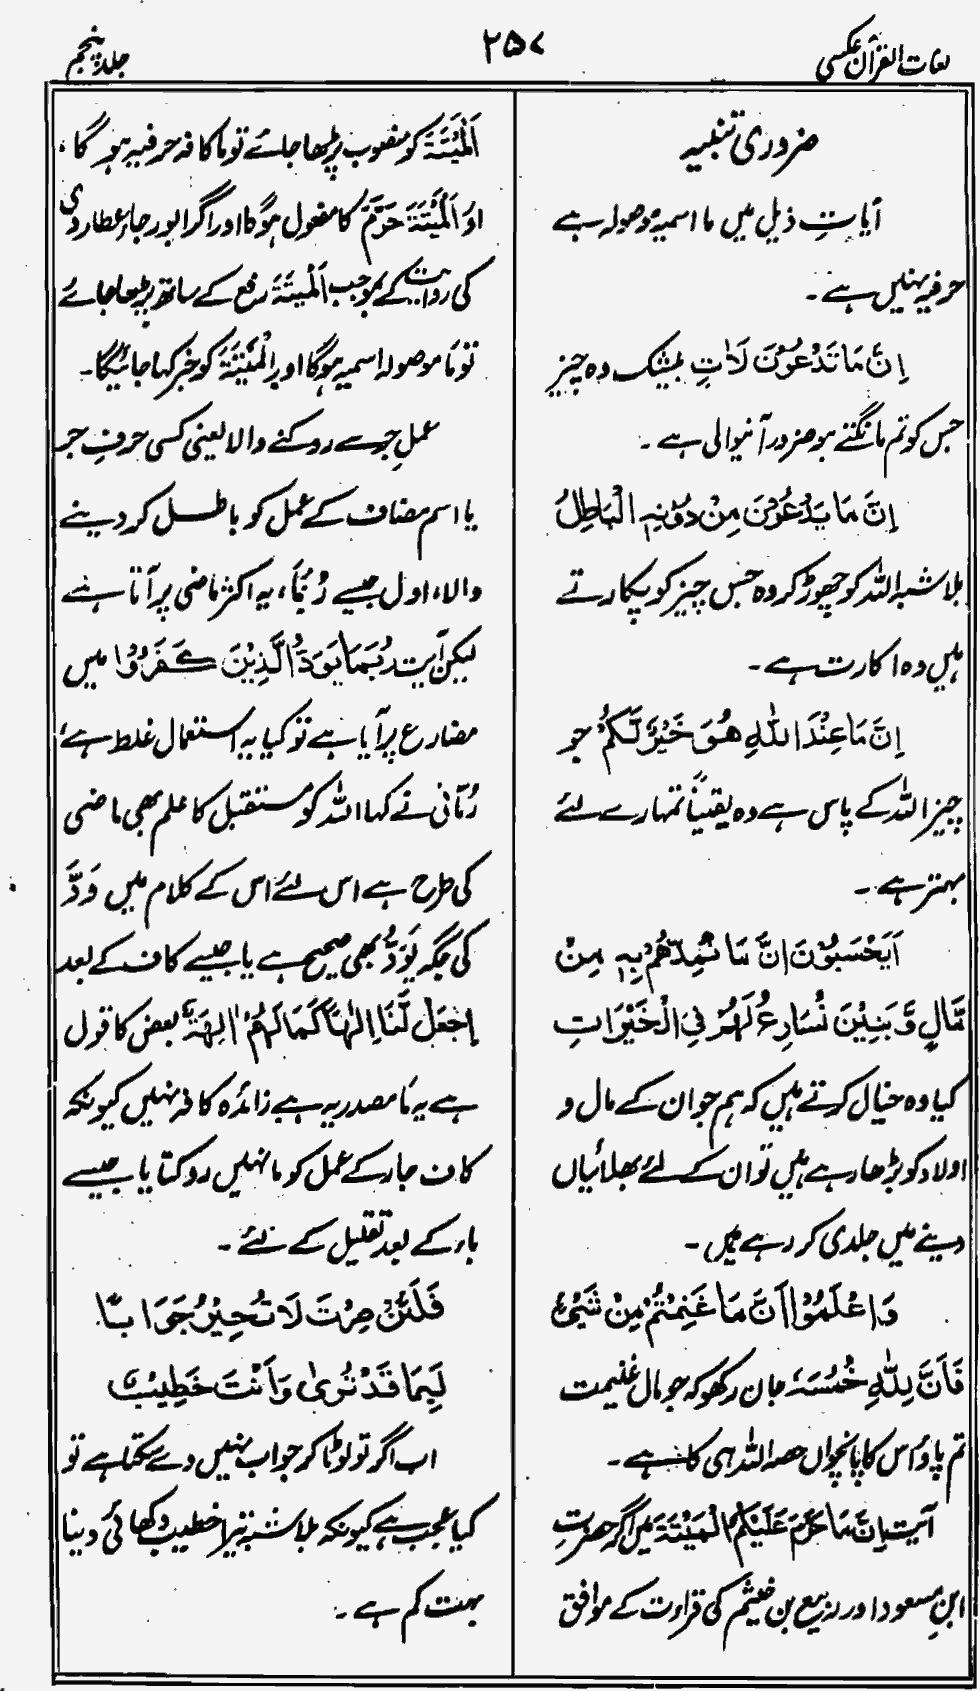 لغات القرآن عکسی
۲۵۷
جلد پنجم
ضروری تنبیہ
آیاتِ ذیل میں ما اسمیہ موصولہ ہے
حرفیہ نہیں ہے۔
اِنَّ مَا تَدْعُوْنَ لَاٰتٍ بیشک وہ چیز
جس کو تم مانگتے ہو ضرور آنیوالی ہے۔
اِنَّ مَا یَدْعُوْنَ مِنْ دُوْنِہِ الْبَاطِلُ
بلاشبہ اللہ کو چھوڑ کر وہ جس چیز کو پکارتے
ہیں وہ اکارت ہے۔
اِنَّ مَا عِنْدَ اللّٰہِ ھُوَ خَیْرٌ لَّکُمْ جو
چیز اللہ کے پاس ہے وہ یقیناً تمہارے لئے
بہتر ہے۔
اَیَحْسَبُوْنَ اِنَّ مَا نُمِدُّھُمْ بِہٖ مِنْ
مَّالٍ وَّبَنِیْنَ نُسَارِعُ لَہُمْ فِی الْخَیْرَاتِ
کیا وہ خیال کرتے ہیں کہ ہم جو ان کے مال و
اولاد کو بڑھا رہے ہیں تو ان کے لئے بھلائیاں
دینے میں جلدی کر رہے ہیں۔
وَاعْلَمُوْا اَنَّ مَا غَنِمْتُمْ مِنْ شَیْءٍ
فَاَنَّ لِلّٰہِ خُمُسَہٗ جان رکھو کہ جو مال غنیمت
تم پاؤ اس کا پانچواں حصہ اللہ ہی کا ہے۔
آیت اِنَّ مَا حَرَّمَ عَلَیْکُمُ الْمَیْتَۃَ میں اگر حضرت
ابن مسعود اور ربیع بن خثیم کی قراءت کے موافق
اَلْمَیْتَۃَ کو منصوب پڑھا جائے تو ما کافہ حرفیہ ہوگا،
اور اَلْمَیْتَۃَ حَرَّمَ کا مفعول ہوگا اور اگر ابورجاء عطاردی
کی روایت کے بموجب اَلْمَیْتَۃُ رفع کے ساتھ پڑھا جائے
تو مَا موصولہ اسمیہ ہوگا اور اَلْمَیْتَۃُ کو خبر کہا جائیگا۔
عمل جر سے روکنے والا یعنی کسی حرفِ جر
یا اسم مضاف کے عمل کو باطل کر دینے
والا، اول جیسے رُبَمَا، یہ اکثر ماضی پر آتا ہے
لیکن آیت رُبَمَا یَوَدُّ الَّذِیْنَ کَفَرُوْا میں
مضارع پر آیا ہے تو کیا یہ استعمال غلط ہے؟
رُمّانی نے کہا اللہ کو مستقبل کا علم بھی ماضی
کی طرح ہے اس لئے اس کے کلام میں وَدَّ
کی جگہ یَوَدُّ بھی صحیح ہے یا جیسے کاف کے بعد
اِجْعَلْ لَّنَا اِلٰہًا کَمَا لَہُمْ اٰلِہَۃٌ، بعض کا قول
ہے یہ مَا مصدریہ ہے زائدہ کافہ نہیں کیونکہ
کاف جار کے عمل کو ما نہیں روکتا یا جیسے
باء کے بعد تقلیل کے لئے۔
فَلَئِنْ صِرْتَ لَا تُحِیْرُ جَوَابًا
لَبِمَا قَدْ تُرٰی وَاَنْتَ خَطِیْبٌ
اب اگر تو لوٹا کر جواب نہیں دے سکتا ہے تو
کیا عجب ہے کیونکہ بلاشبہ تیرا خطیب دکھائی دینا
بہت کم ہے۔